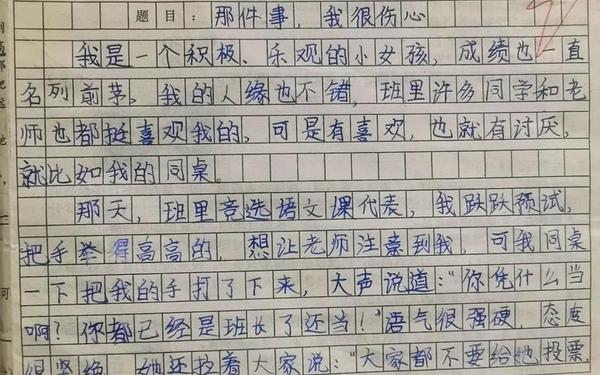 题目：那件事，我很伤心
我是一个积极、乐观的小女孩，成绩也一直
名列前茅。我的人缘也不错，班里许多同学和老
师也都挺喜观我的。可是有喜欢，也就有讨厌，
就比如我的同桌。
那天，班里竞选语文课代表，我跃跃预试，
把手举得高高的，想让老师注意到我，可我同桌
一下把我的手打了下来，大声说道：“你凭什么当
啊？你都已经是班长了还当！”语气很强硬，态度
很坚绝，她还拉着大家说：“大家都不要给她投票，